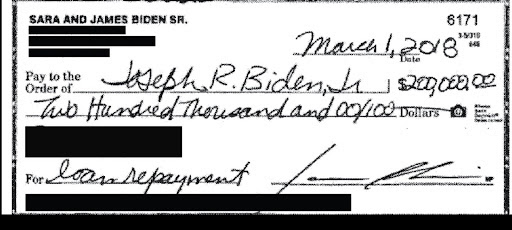 SARA AND JAMES BIDEN SR.
6171
March 1, 2018
Date
Pay to the
Order of
Joseph R. Biden, Jr
$200,000.00
Two Hundred Thousand and 00/100 Dollars
For loan repayment